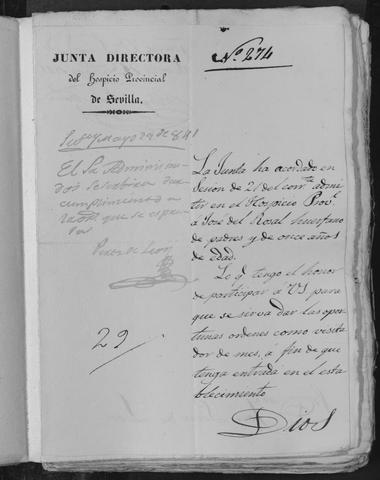 JUNTA DIRECTORA
del Hospicio Provincial
de Sevilla.
Nº 274
Mayo 28 de 841
El Sr Administra-
dor se servirá dar
cumplimiento a
la que se expre-
Perez de Leon
29
La Junta ha acordado en
Sesion de 21 del corrte admi-
tir en el Hospicio Provl
a José del Rosal huerfano
de padres y de once años
de edad.
Lo q. tengo el honor
de participar á VS para
que se sirva dar las opor-
tunas ordenes como visita
dor de mes, á fin de que
tenga entrada en el esta
blecimiento
Dios